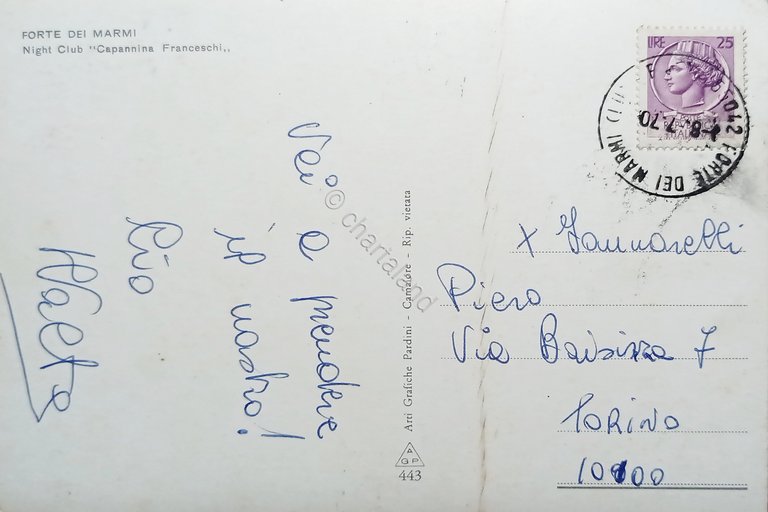 FORTE DEI MARMI
Night Club "Capannina Franceschi„
Vai a prendere
il nastro!
Ciao
Walter
© chartaland
Arti Grafiche Pardini - Camaiore - Rip. vietata
AGP
443
LIRE 25
55042 FORTE DEI MARMI
-8.7.70
X Iannarelli
Piero
Via 7
TORINO
10100